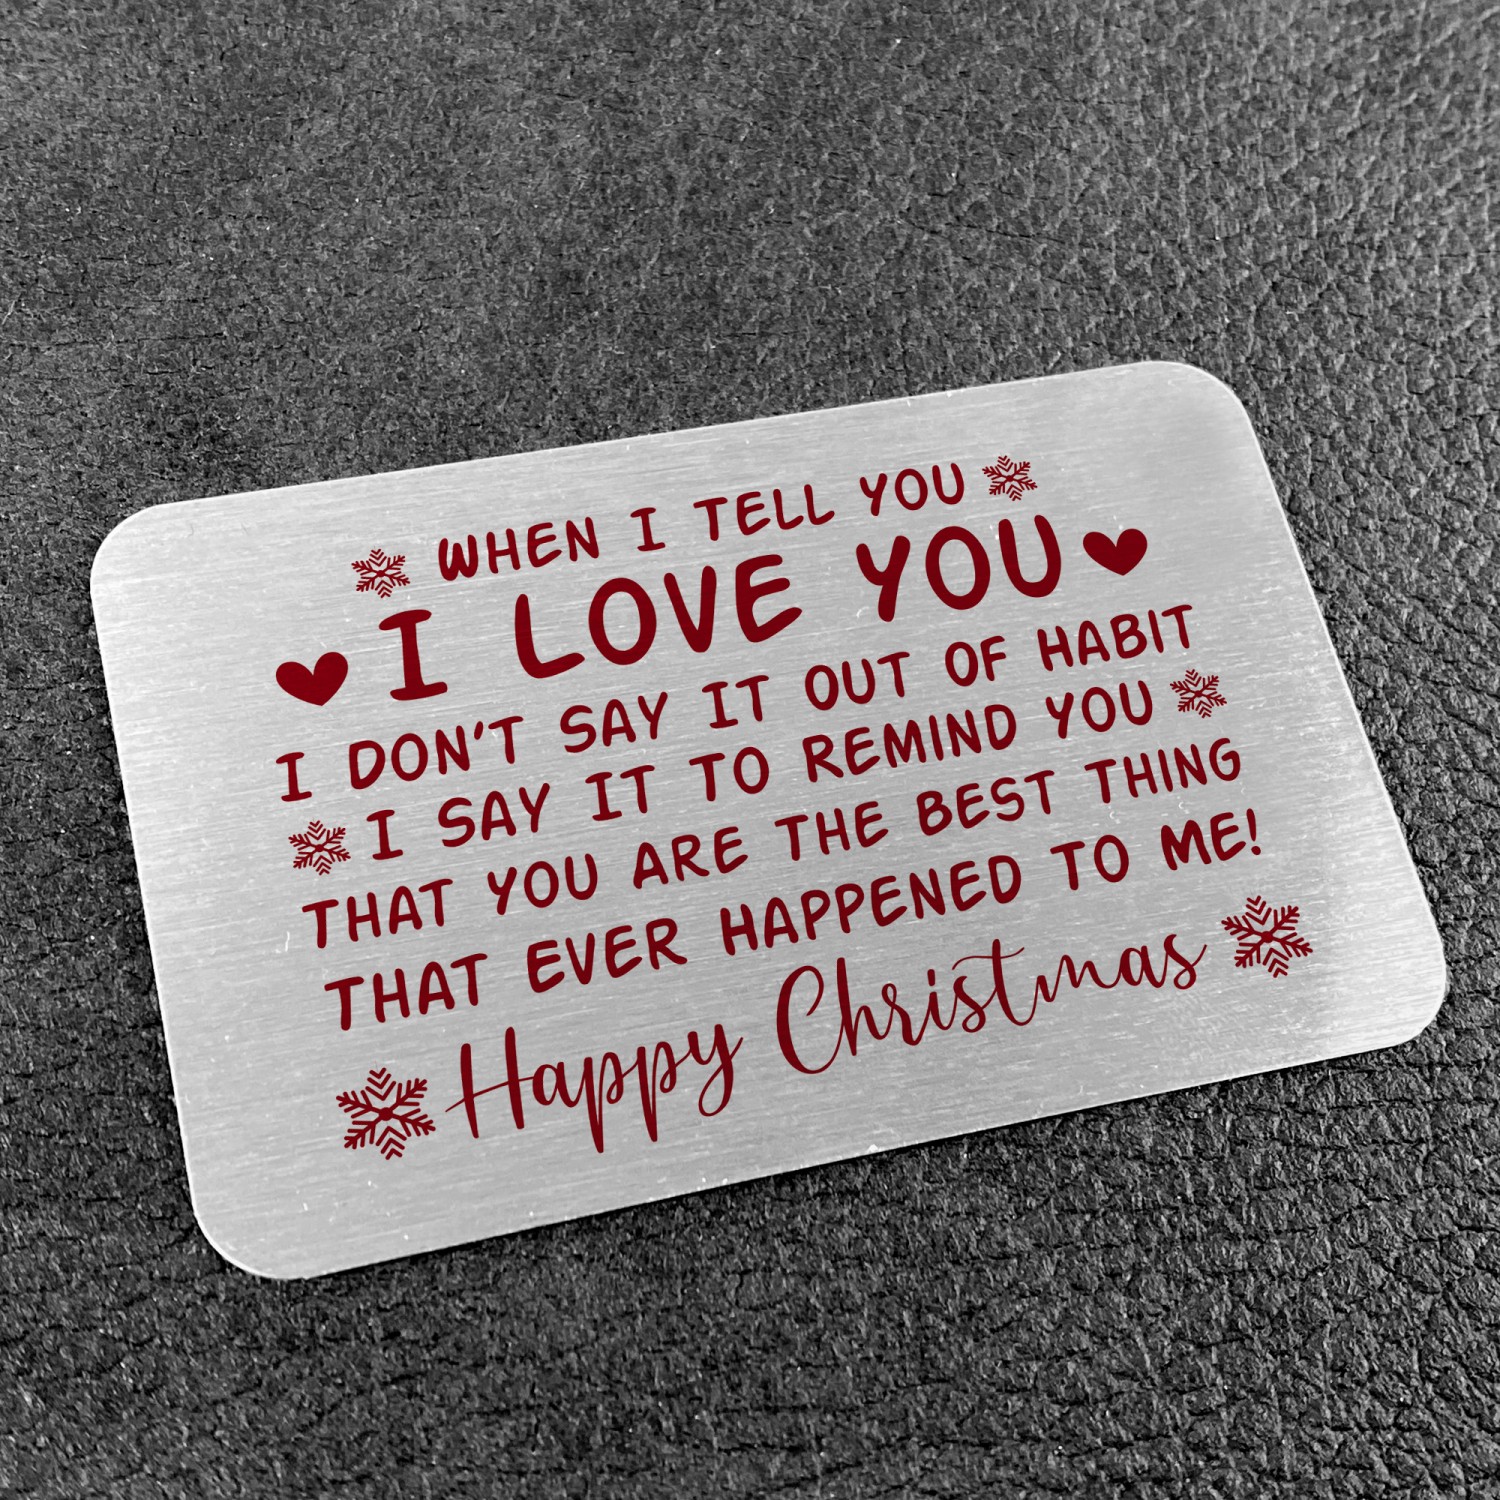 WHEN I TELL YOU
I LOVE YOU
I DON'T SAY IT OUT OF HABIT
I SAY IT TO REMIND YOU
THAT YOU ARE THE BEST THING
THAT EVER HAPPENED TO ME!
Happy Christmas